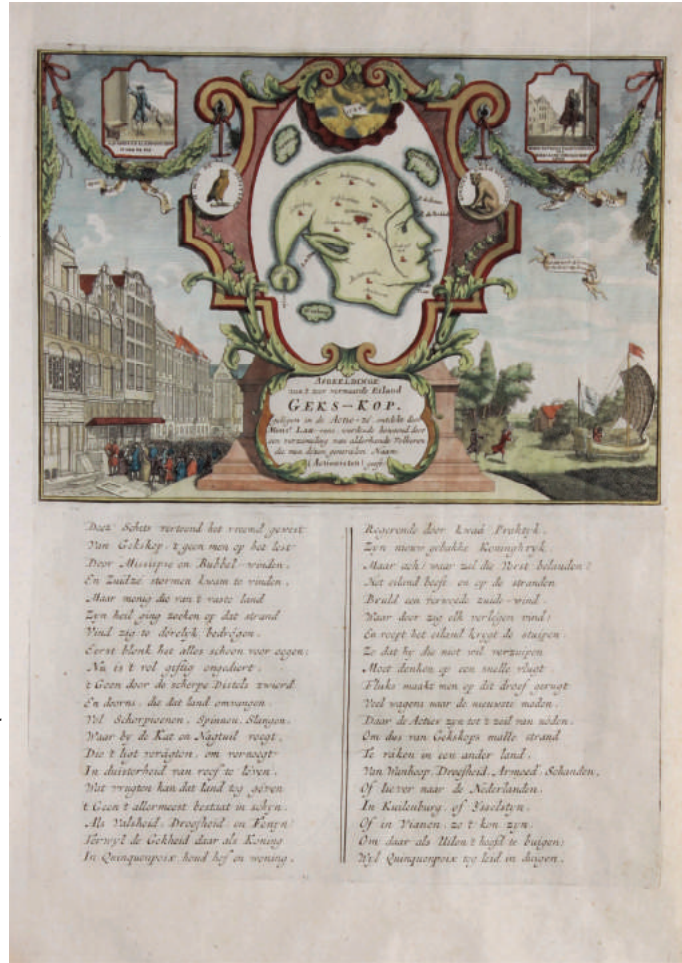 AFBEELDINGE
van't zeer vermaarde Eiland
GEKS-KOP.
gelegen in de Actie-zé ontdekt door
Monsr. Law-rens, werdende bewoond door
een verzameling van alderhande Volkeren
die men dezen generalen Naam
(Actionisten) geeft.
Deez' Schets vertoond het vreemd gewest
Van Gekskop, 't geen men op het lest
Door Missisipie en Bubbel-winden,
En Zuidze stormen kwam te vinden,
Maar menig die van 't vaste land
Zyn heil ging zoeken op dat strand
Vind zig te dérelyk bedrógen.
Eerst blonk het alles schoon voor oogen;
Nu is 't vol giftig ongediert,
't Geen door de scherpe Distels zwierd
En doorns, die dat land omvangen.
Vol Schorpioenen, Spinnen, Slangen,
Waar by de Kat en Nagtuil voegt,
Die 't ligt veragten, om vernoegt
In duisterheid van roof te léven.
Wat vrugten kan dat land tog géven
't Geen 't allermeest bestaat in schyn.
Als Valsheid, Droefheid, en Fenyn?
Terwyl de Gekheid daar als Koning
In Quinquenpoix houd hof en woning,
Regerende door kwaâ Praktyk,
Zyn nieuw gebakke Koninghryk.
Maar ach! waar zal die Vorst belanden?
Het eiland beeft, en op de stranden
Bruld een verwoede zuide-wind
Waar door zig elk verlégen vind;
En roept het eiland krygt de stuipen.
Zo dat hy die niet wil verzuipen
Moet denken op een snelle vlugt.
Fluks maakt men op dit droef gerugt
Veel wagens naar de nieuwste moden,
Daar de Acties zyn tot 't zeil van noden,
Om dus van Gekskops malle strand
Te raken in een ander land,
Van Wanhoop, Droefheid, Armoed, Schanden,
Of liever naar de Nederlanden.
In Kuilenburg, of Ysselstyn,
Of in Vianen, zo 't kon zyn,
Om daar als Uilen 't hoofd te buigen;
Wyl Quinquenpoix tog leid in duigen.